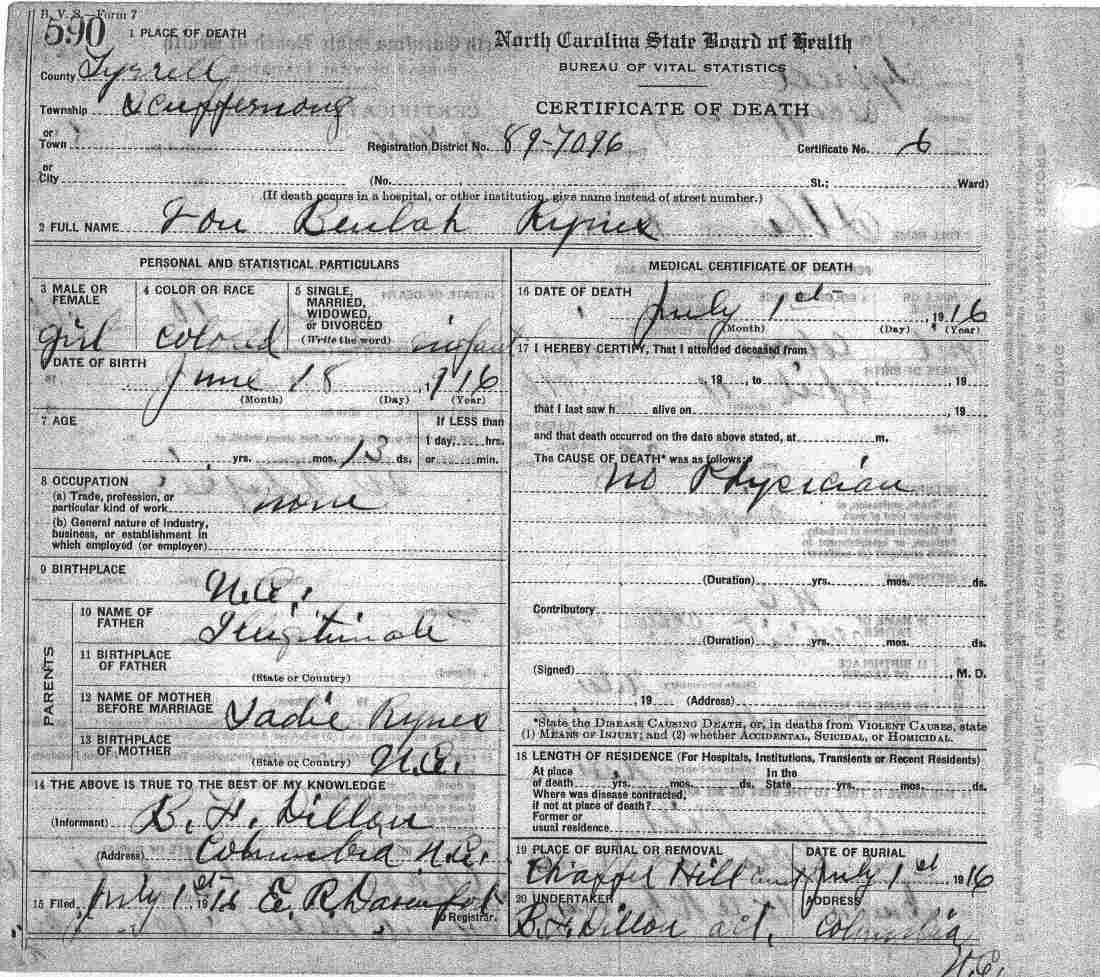 B. V. S.—Form 7
590
1 PLACE OF DEATH
County Tyrrell
Township Scuppernong
or
Town
or
City
North Carolina State Board of Health
BUREAU OF VITAL STATISTICS
CERTIFICATE OF DEATH
Registration District No. 89-7096 Certificate No. 6
(No. St.; Ward)
(If death occurs in a hospital, or other institution, give name instead of street number.)
2 FULL NAME Beulah Rynes
PERSONAL AND STATISTICAL PARTICULARS
3 MALE OR FEMALE
girl
4 COLOR OR RACE
colored
5 SINGLE, MARRIED, WIDOWED, or DIVORCED
(Write the word) infant
6 DATE OF BIRTH
June 18, 1916
(Month) (Day) (Year)
7 AGE
yrs. mos. 13 ds.
If LESS than
1 day, hrs.
or min.
8 OCCUPATION
(a) Trade, profession, or
particular kind of work none
(b) General nature of industry,
business, or establishment in
which employed (or employer)
9 BIRTHPLACE
N.C.
PARENTS
10 NAME OF FATHER
Illegitimate
11 BIRTHPLACE OF FATHER
(State or Country)
12 NAME OF MOTHER BEFORE MARRIAGE Sadie Rynes
13 BIRTHPLACE OF MOTHER
(State or Country) N.C.
14 THE ABOVE IS TRUE TO THE BEST OF MY KNOWLEDGE
(Informant) B. F. Dillon
(Address) Columbia N.C.
15 Filed July 1st 1916 E. R. Davenport
Registrar.
MEDICAL CERTIFICATE OF DEATH
16 DATE OF DEATH
July 1st, 1916
(Month) (Day) (Year)
17 I HEREBY CERTIFY, That I attended deceased from
, 19 , to , 19
that I last saw h alive on , 19
and that death occurred on the date above stated, at m.
The CAUSE OF DEATH* was as follows:
no Physician
(Duration) yrs. mos. ds.
Contributory
(Duration) yrs. mos. ds.
(Signed) , M. D.
, 19 (Address)
*State the DISEASE CAUSING DEATH, or, in deaths from VIOLENT CAUSES, state
(1) MEANS OF INJURY; and (2) whether ACCIDENTAL, SUICIDAL, or HOMICIDAL.
18 LENGTH OF RESIDENCE (For Hospitals, Institutions, Transients or Recent Residents)
At place of death yrs. mos. ds. In the State yrs. mos. ds.
Where was disease contracted,
if not at place of death?
Former or
usual residence
19 PLACE OF BURIAL OR REMOVAL
Chappel Hill
DATE OF BURIAL
July 1st 1916
20 UNDERTAKER
B. F. Dillon act.
ADDRESS
Columbia
N.C.